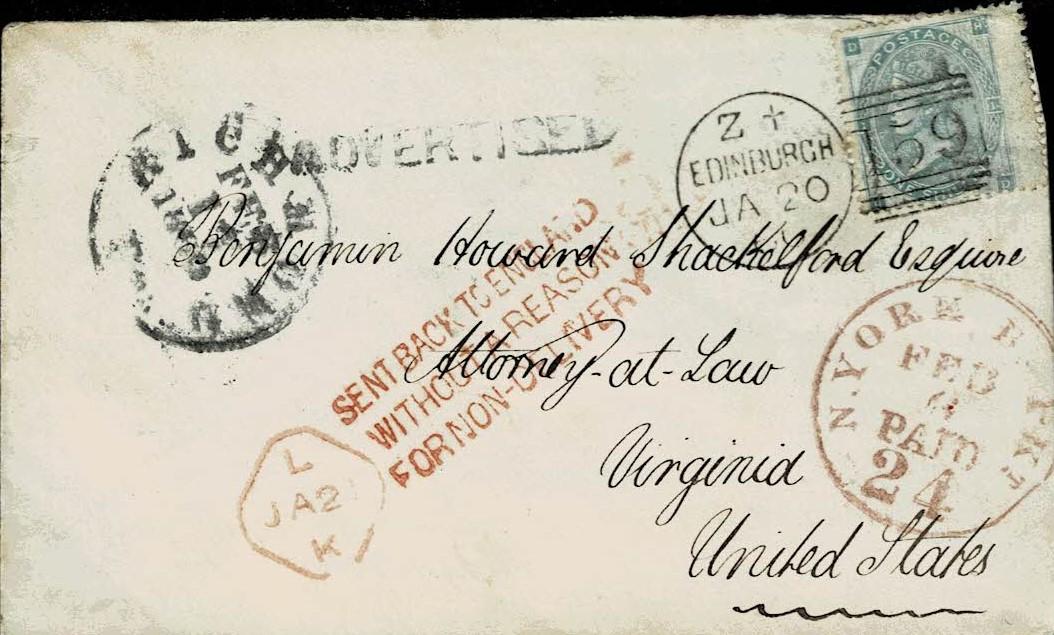 ADVERTISED
RICHMOND
FEB
Z +
EDINBURGH
JA 20
POSTAGE
D
D
59
Benjamin Howard Shackelford Esquire
Attorney-at-Law
Virginia
United States
SENT BACK TO ENGLAND
WITHOUT A REASON
FOR NON-DELIVERY
L
JA 2
K
N. YORK PKT
FEB
PAID
24